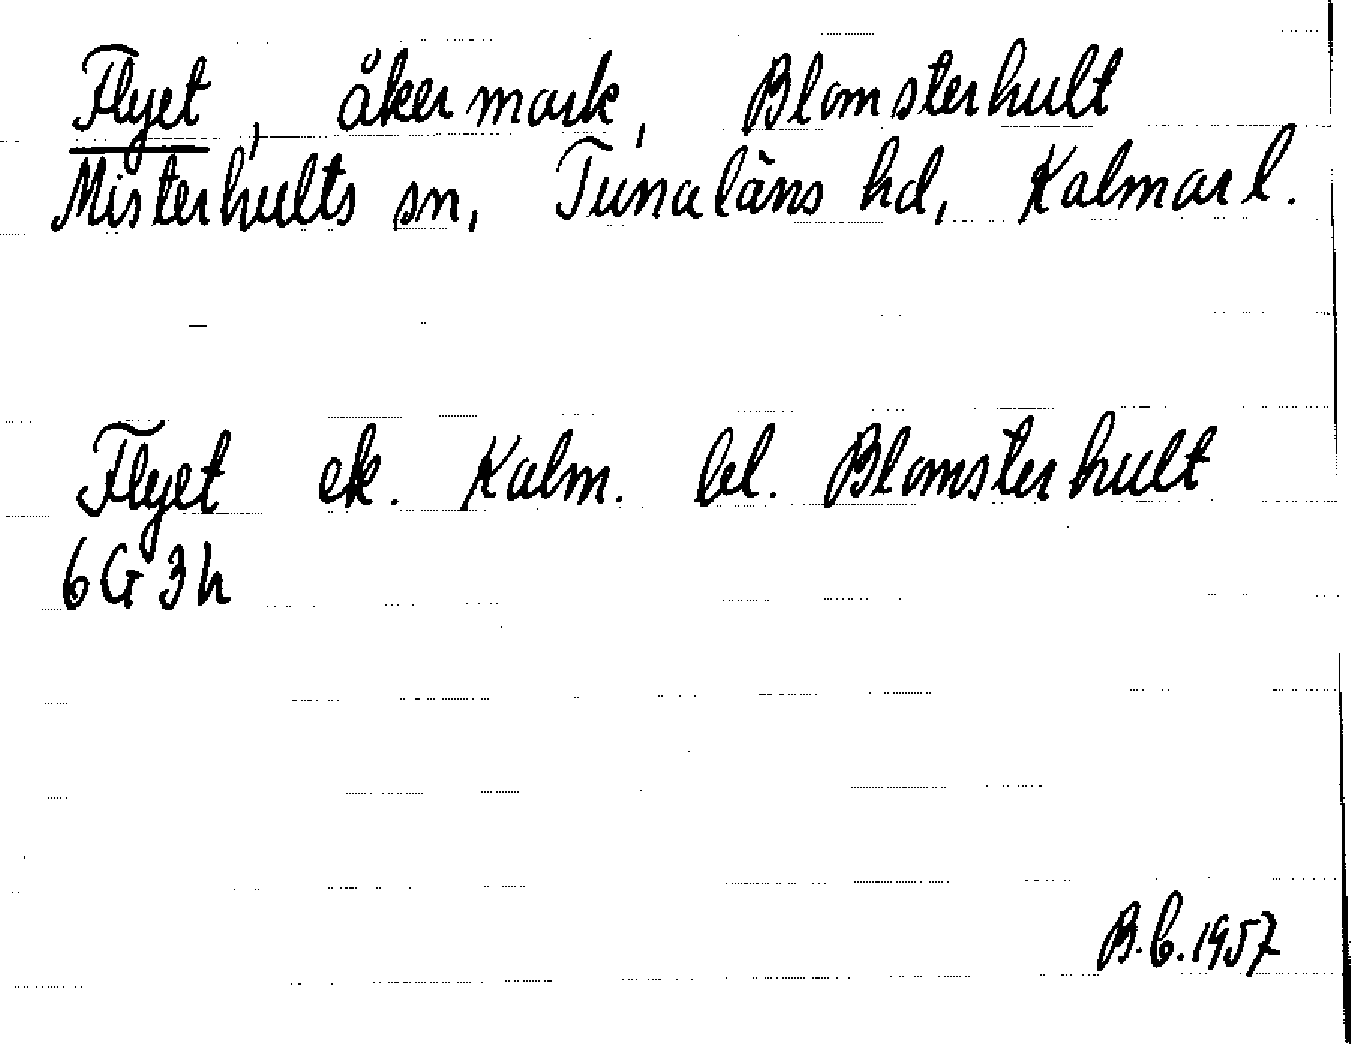 Flyet, åkermark, Blomsterhult
Misterhults sn, Tunaläns hd, Kalmar l.
Flyet ek. Kalm. bl. Blomsterhult
6G3h
B.G.1957